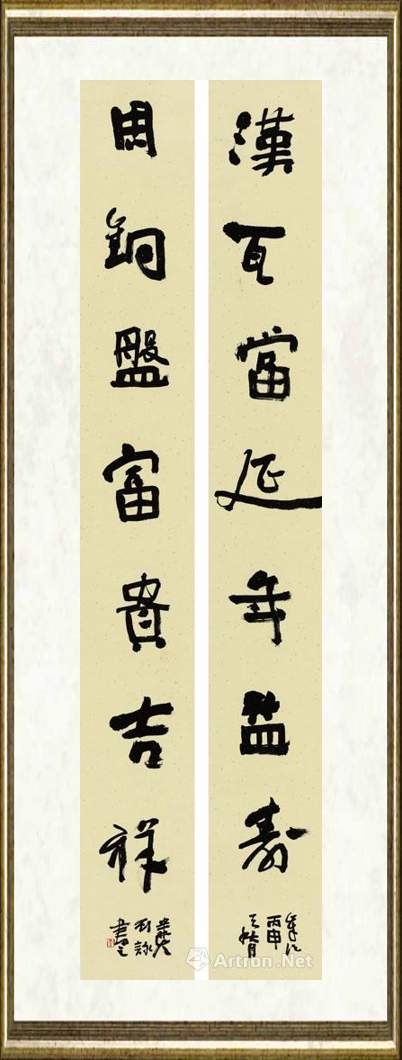 漢瓦當延年益壽
周銅盤富貴吉祥
丙申
Artron.Net